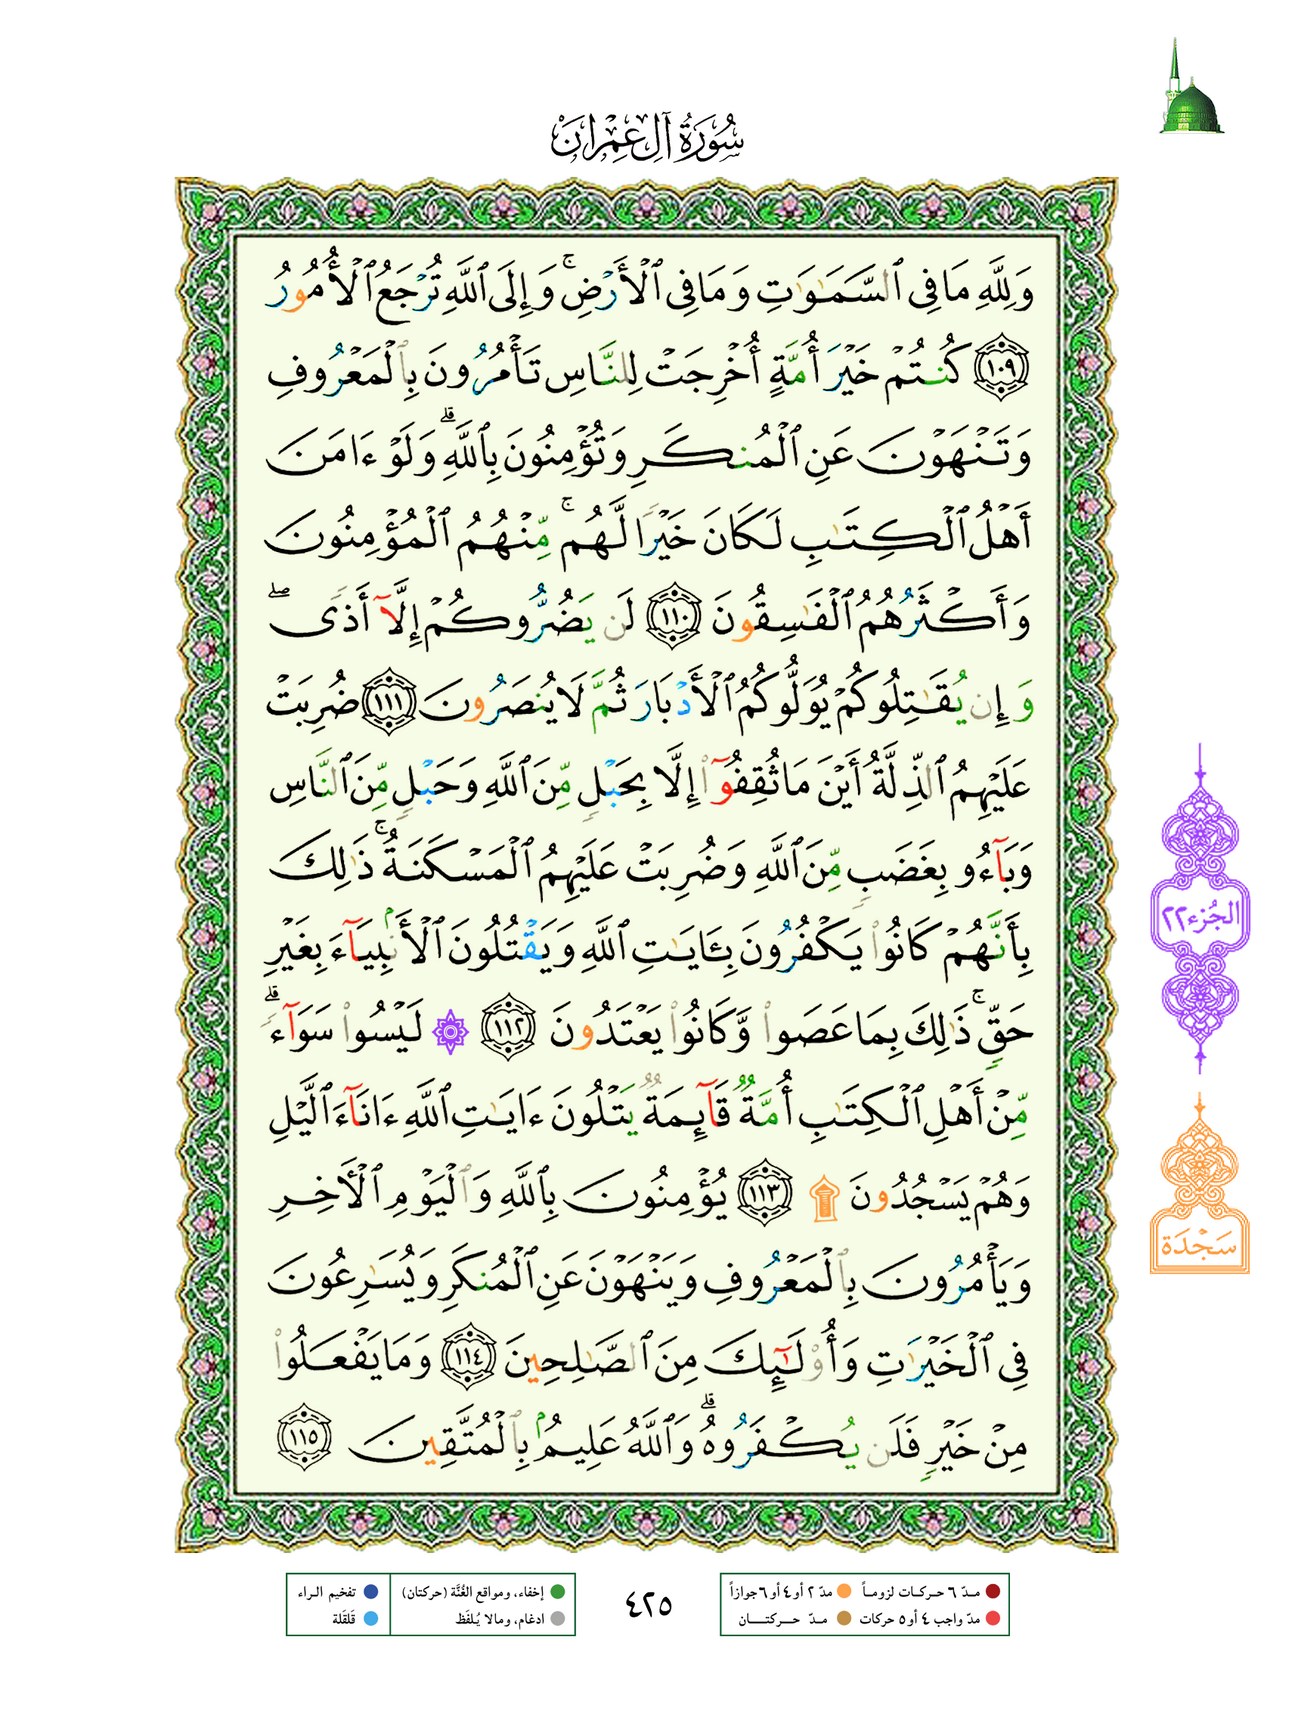 سُورَةُ آلِ عِمْرَانَ
وَلِلَّهِ مَا فِى ٱلسَّمَـٰوَٰتِ وَمَا فِى ٱلْأَرْضِ ۚ وَإِلَى ٱللَّهِ تُرْجَعُ ٱلْأُمُورُ
١٠٩ كُنتُمْ خَيْرَ أُمَّةٍ أُخْرِجَتْ لِلنَّاسِ تَأْمُرُونَ بِٱلْمَعْرُوفِ
وَتَنْهَوْنَ عَنِ ٱلْمُنكَرِ وَتُؤْمِنُونَ بِٱللَّهِ ۗ وَلَوْ ءَامَنَ
أَهْلُ ٱلْكِتَـٰبِ لَكَانَ خَيْرًا لَّهُم ۚ مِّنْهُمُ ٱلْمُؤْمِنُونَ
وَأَكْثَرُهُمُ ٱلْفَـٰسِقُونَ ١١٠ لَن يَضُرُّوكُمْ إِلَّآ أَذًى ۖ
وَإِن يُقَـٰتِلُوكُمْ يُوَلُّوكُمُ ٱلْأَدْبَارَ ثُمَّ لَا يُنصَرُونَ ١١١ ضُرِبَتْ
عَلَيْهِمُ ٱلذِّلَّةُ أَيْنَ مَا ثُقِفُوٓا۟ إِلَّا بِحَبْلٍ مِّنَ ٱللَّهِ وَحَبْلٍ مِّنَ ٱلنَّاسِ
وَبَآءُو بِغَضَبٍ مِّنَ ٱللَّهِ وَضُرِبَتْ عَلَيْهِمُ ٱلْمَسْكَنَةُ ۚ ذَٰلِكَ
بِأَنَّهُمْ كَانُوا۟ يَكْفُرُونَ بِـَٔايَـٰتِ ٱللَّهِ وَيَقْتُلُونَ ٱلْأَنۢبِيَآءَ بِغَيْرِ
حَقٍّ ۚ ذَٰلِكَ بِمَا عَصَوا۟ وَّكَانُوا۟ يَعْتَدُونَ ١١٢ ۞ لَيْسُوا۟ سَوَآءً ۗ
مِّنْ أَهْلِ ٱلْكِتَـٰبِ أُمَّةٌ قَآئِمَةٌ يَتْلُونَ ءَايَـٰتِ ٱللَّهِ ءَانَآءَ ٱلَّيْلِ
وَهُمْ يَسْجُدُونَ ۩ ١١٣ يُؤْمِنُونَ بِٱللَّهِ وَٱلْيَوْمِ ٱلْـَٔاخِرِ
وَيَأْمُرُونَ بِٱلْمَعْرُوفِ وَيَنْهَوْنَ عَنِ ٱلْمُنكَرِ وَيُسَـٰرِعُونَ
فِى ٱلْخَيْرَٰتِ وَأُو۟لَـٰٓئِكَ مِنَ ٱلصَّـٰلِحِينَ ١١٤ وَمَا يَفْعَلُوا۟
مِنْ خَيْرٍ فَلَن يُكْفَرُوهُ ۗ وَٱللَّهُ عَلِيمٌۢ بِٱلْمُتَّقِينَ ١١٥
الجُزء ٢٢
سَجْدَة
مـدّ ٦ حـركـات لزومـاً مدّ ٢ أو ٤ أو ٦ جوازاً
مدّ واجب ٤ أو ٥ حركات مـدّ حــركتــان
٤٢٥
إخفاء، ومواقع الغُنَّة (حركتان) تفخيم الراء
ادغام، ومالا يُلفَظ قَلقَلة